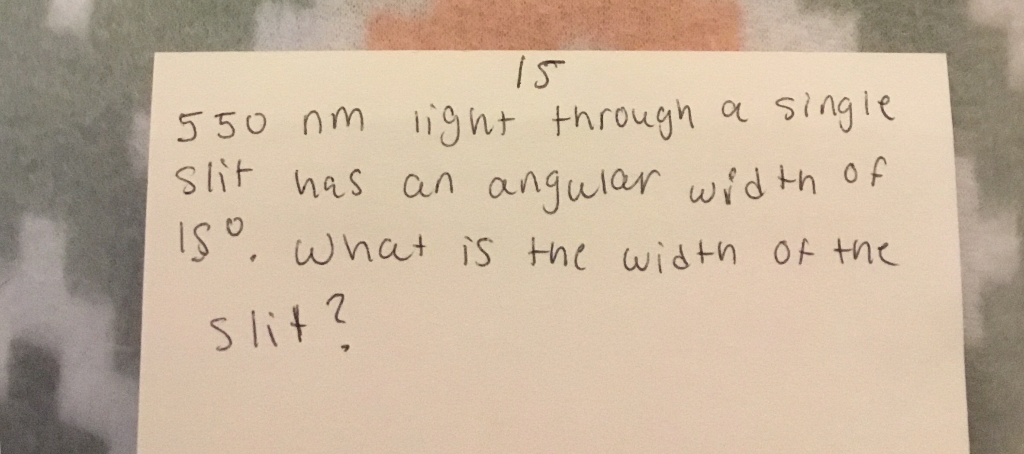 15
550 nm light through a single
slit has an angular width of
15°. What is the width of the
slit?